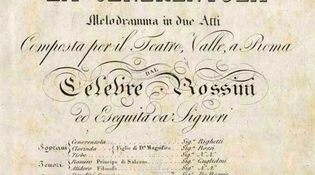 LA CENERENTOLA
Melodramma in due Atti
Composta per il Teatro Valle, a Roma
DAL
Celebre Rossini
ed Eseguita da' Signori
Soprani Cenerentola Sig.ª Righetti
Clorinda Figlie di D.n Magnifico Sig.ª Rossi
Tisbe Sig.ª N.N.
Tenori Ramiro Principe di Salerno Sig.r Guglielmi
Alidoro Filosofo Sig.r N.N.